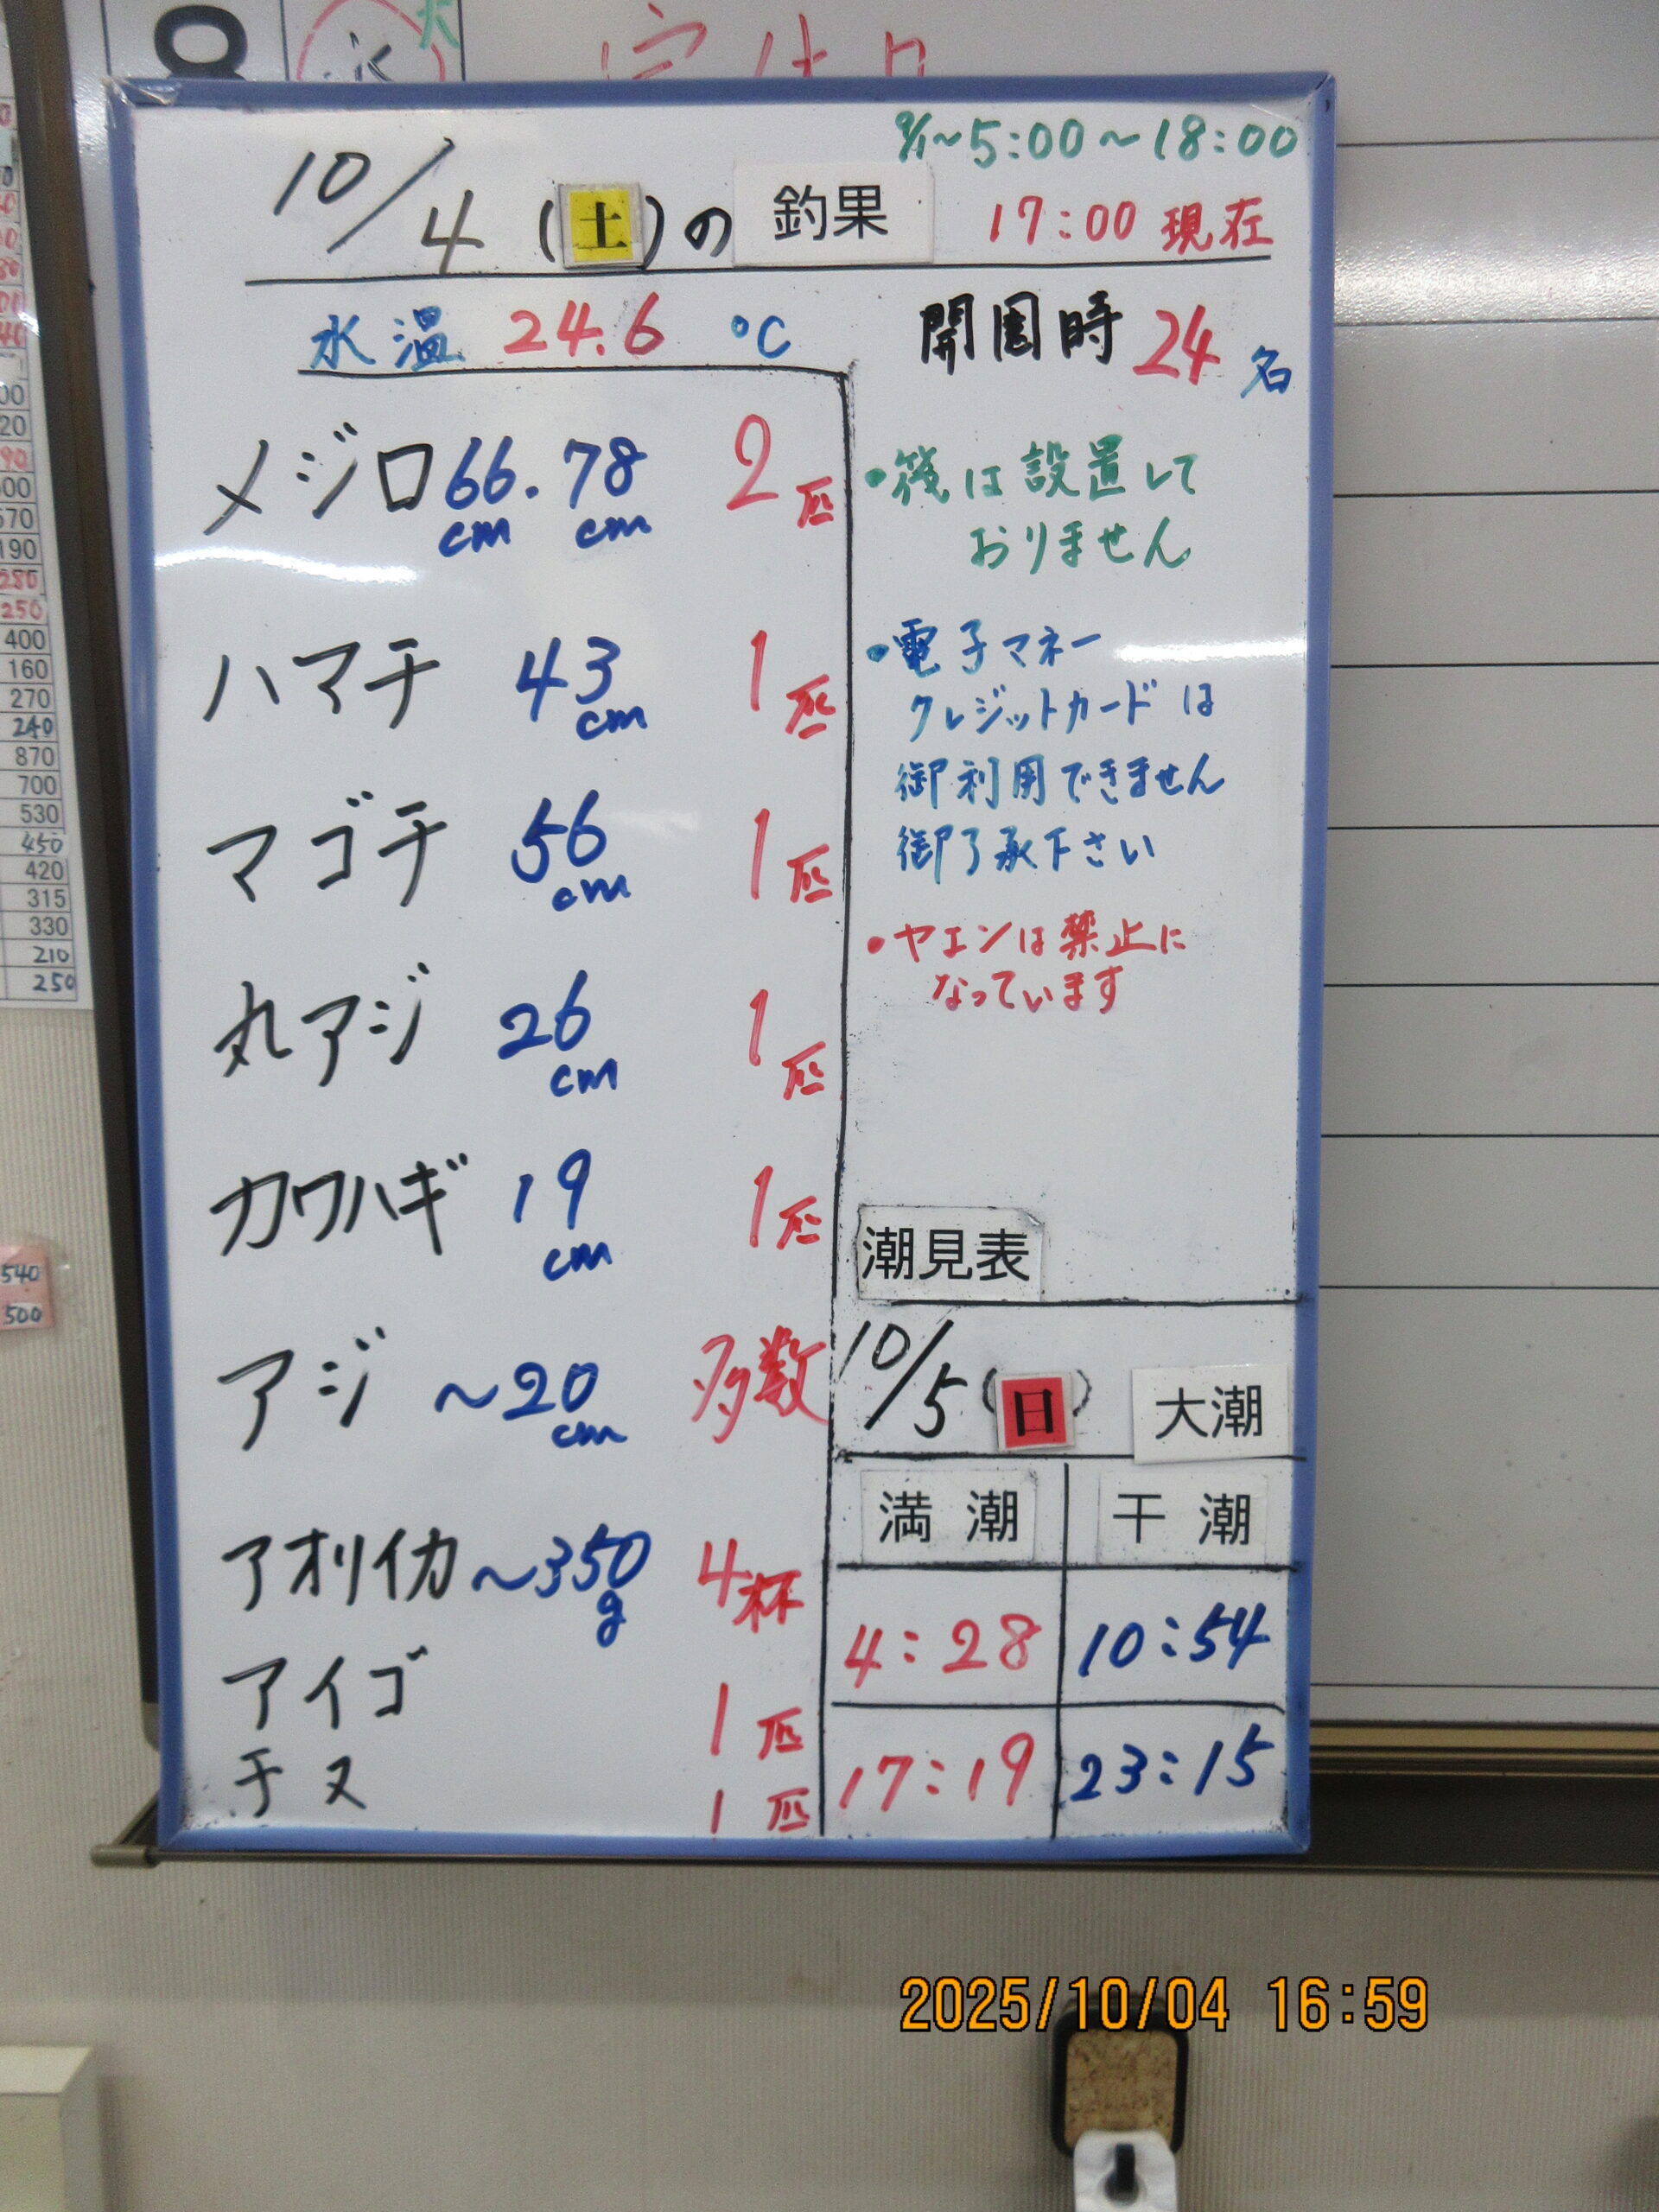 8
水
大
定休日
9/1~5:00~18:00
10/4 (土)の 釣果
17:00 現在
水温 24.6 ℃
開園時 24名
メジロ 66cm. 78cm 2匹
ハマチ 43cm 1匹
マゴチ 56cm 1匹
丸アジ 26cm 1匹
カワハギ 19cm 1匹
アジ ~20cm 多数
アオリイカ ~350g 4杯
アイゴ 1匹
チヌ 1匹
・筏は設置して
おりません
・電子マネー
クレジットカードは
御利用できません
御了承下さい
・ヤエンは禁止に
なっています
潮見表
10/5 (日) 大潮
満潮 干潮
4:28 10:54
17:19 23:15
400
160
270
240
870
700
530
450
420
315
330
210
250
540
500
2025/10/04 16:59